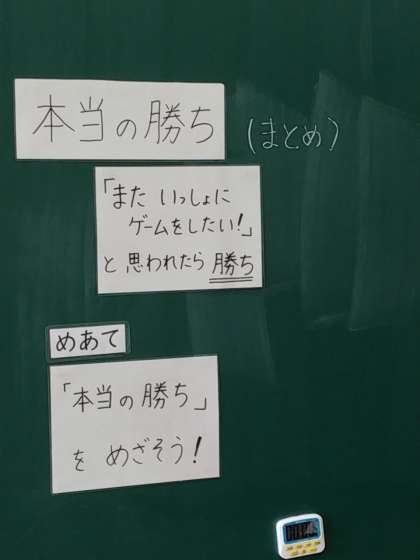 本当の勝ち
(まとめ)
「また いっしょに
ゲームをしたい!」
と思われたら 勝ち
めあて
「本当の勝ち」
を めざそう!